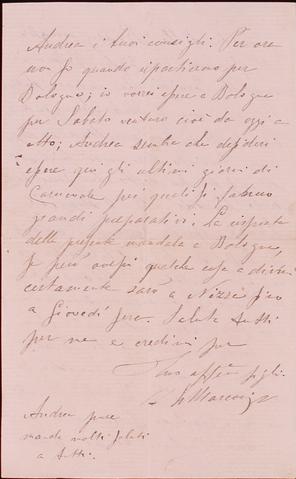 Andrea i tuoi consigli. Per ora
non so quando ripartiremo per
Bologna; io vorrei essere a Bologna
per Sabato venturo cioè da oggi a
otto; Andrea sembra che desideri
essere qui gli ultimi giorni di
Carnevale per quali si fanno
grandi preparativi. La risposta
della presente mandala a Bologna,
se però avessi qualche cosa a dirmi
certamente sarò a Nizza fino
a Giovedì sera. Saluta tutti
per me e credimi pur
Tuo affmo figlio
G Marconi
Andrea pure
manda molti saluti
a tutti.